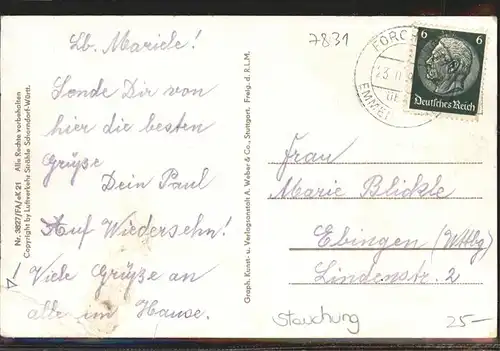 Lb. Mariele!
Sende Dir von
hier die besten
Grüße
Dein Paul
Auf Wiedersehn!
! Viele Grüße an
alle im Hause.
Nr. 3827/FA/eK 21 Alle Rechte vorbehalten
Copyright by Luftverkehr Strähle Schorndorf-Württ.
Graph. Kunst- u. Verlagsanstalt A. Weber & Co., Stuttgart. Freig. d. R.L.M.
7831
FORCH
EMMEN
6 6
Deutsches Reich
Frau
Marie Blickle
Ebingen (Wttbg)
Lindenstr. 2
Stauchung
25-